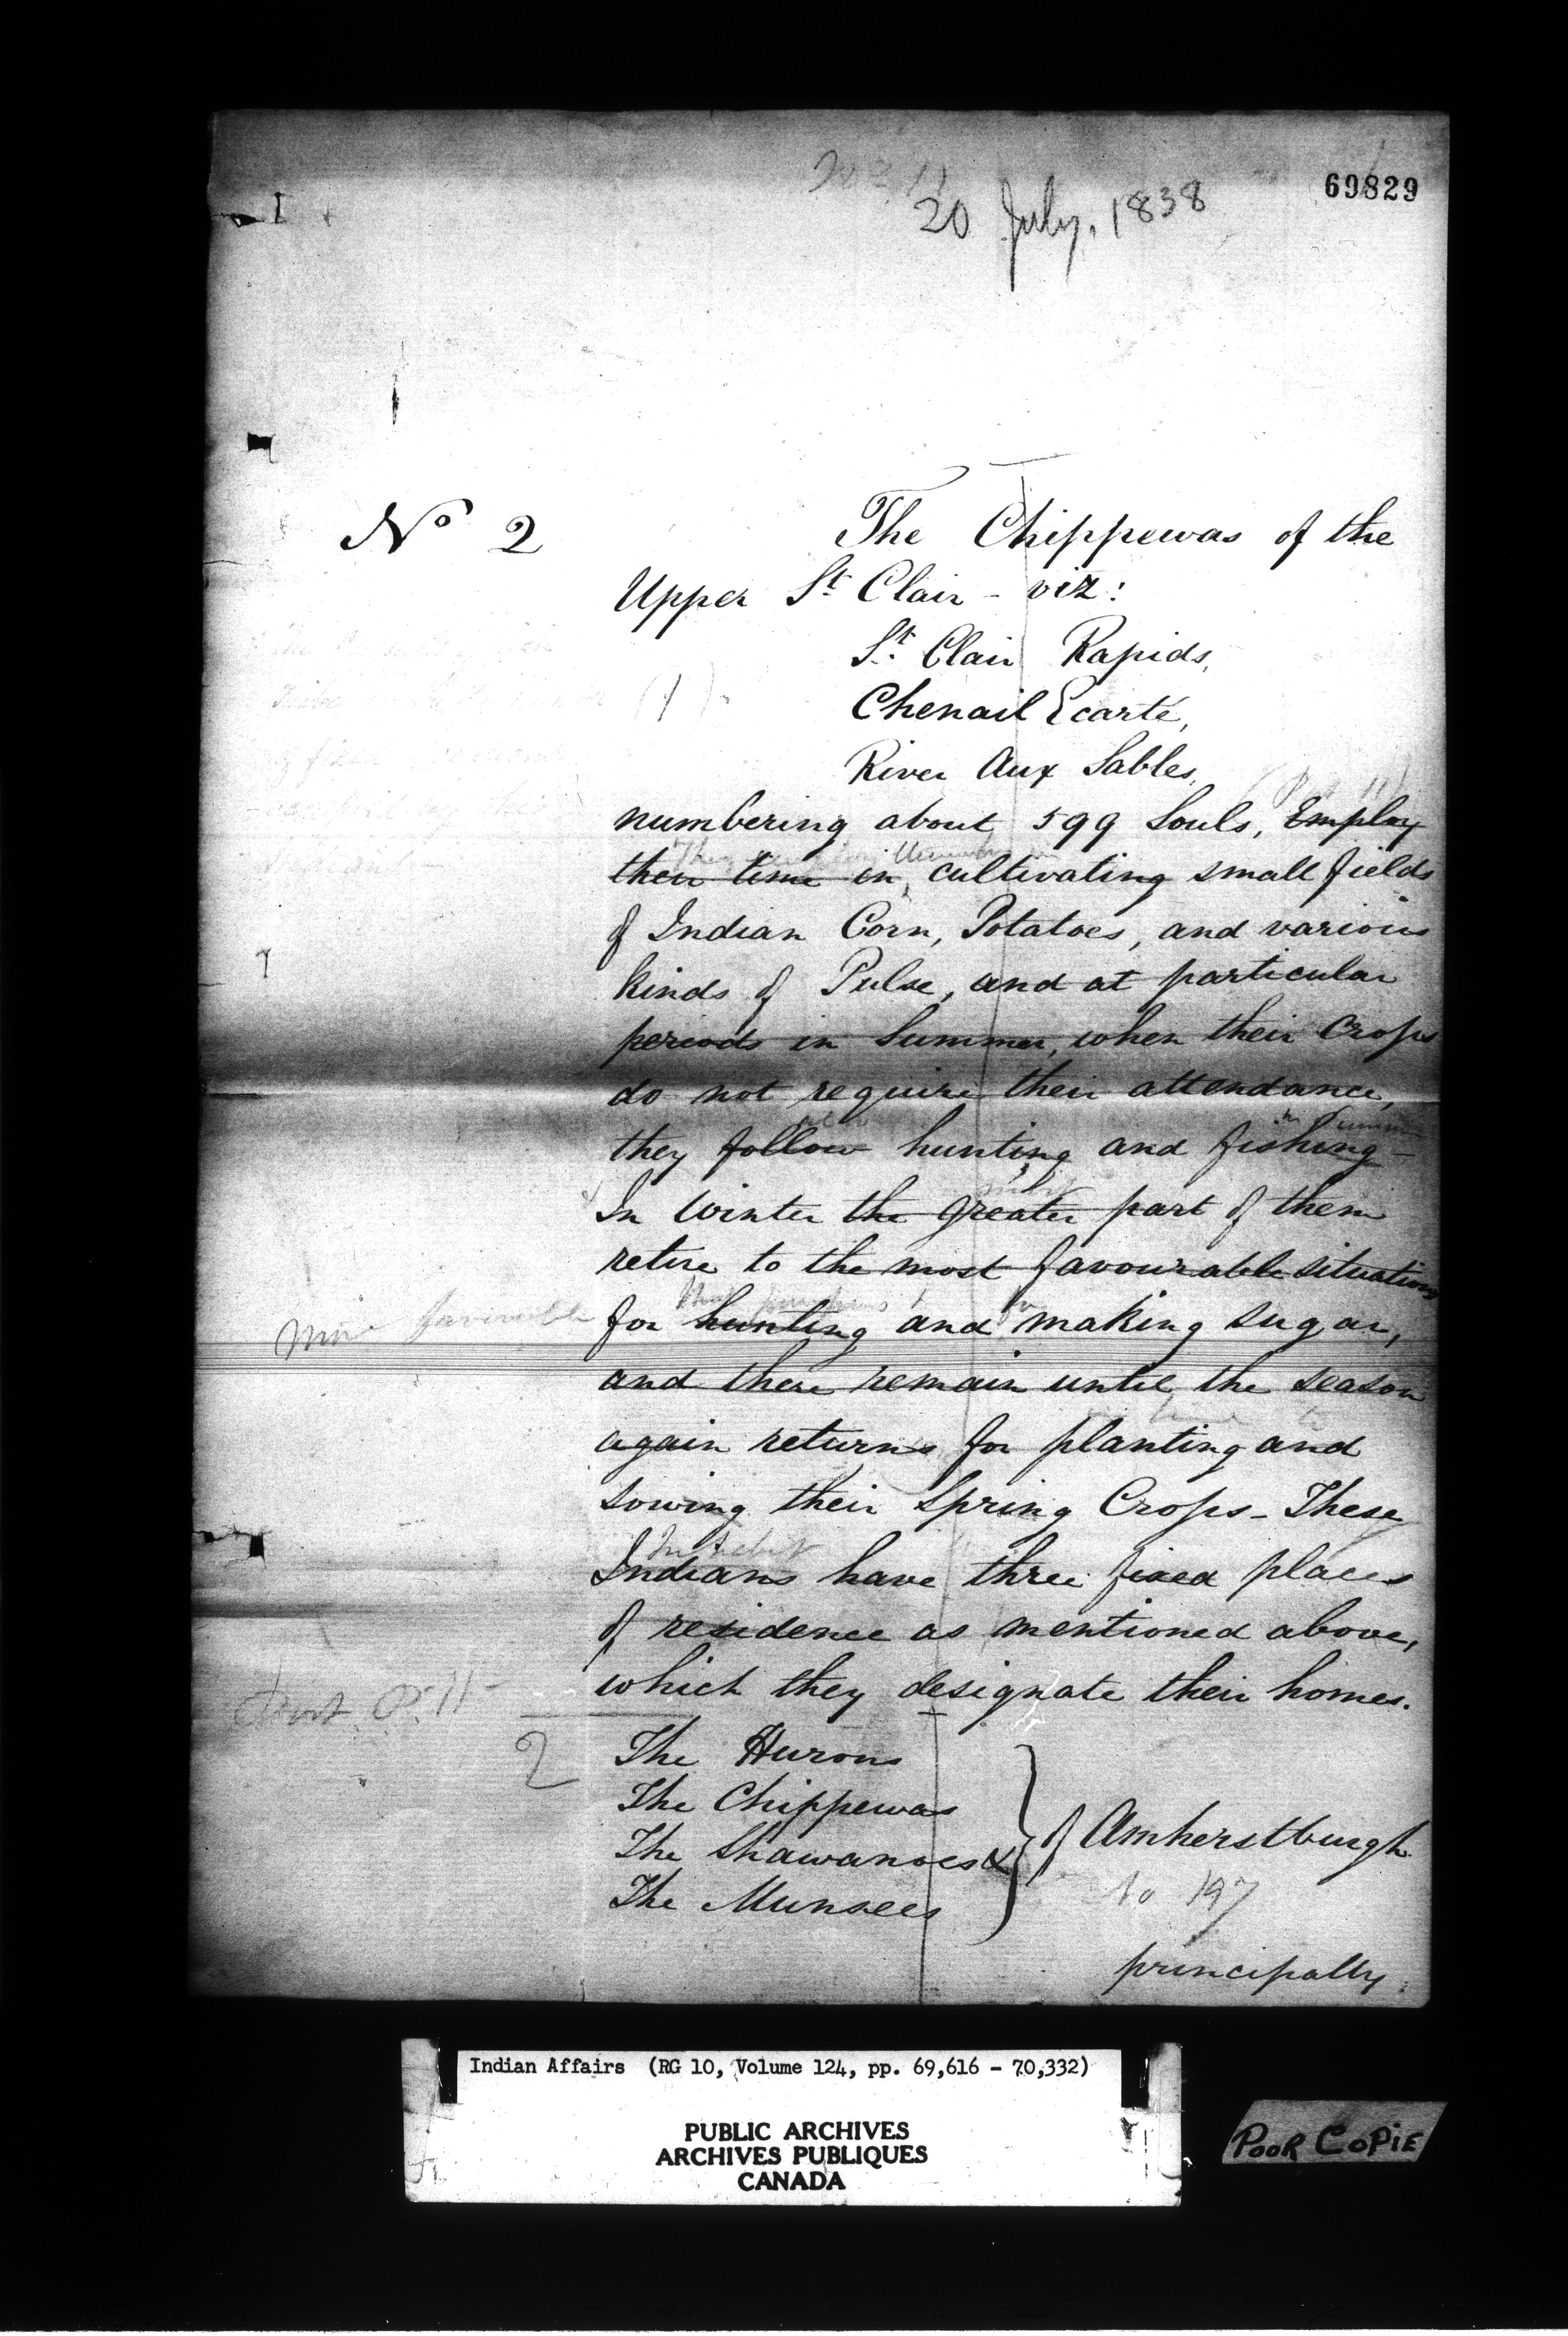 69829
20 July, 1838
No 2
The Chippewas of the
Upper St Clair - viz:
St Clair Rapids,
(1)
Chenail Ecarté,
River Aux Sables,
numbering about 599 Souls, Employ
their time in, cultivating small fields
of Indian Corn, Potatoes, and various
kinds of Pulse, and at particular
periods in Summer, when their Crops
do not require their attendance,
in Summer
they follow hunting and fishing -
most
In Winter the greater part of them
retire to the most favourable situations
for hunting and making sugar,
and there remain until the season
again returns for planting and
sowing their Spring Crops - These
Indians have three fixed places
of residence as mentioned above,
which they designate their homes.
2
The Hurons
The Chippewas
The Shawanoes &
The Munsees
} of Amherstburgh
to 197
principally
Indian Affairs (RG 10, Volume 124, pp. 69,616 - 70,332)
PUBLIC ARCHIVES
ARCHIVES PUBLIQUES
CANADA
POOR COPIE